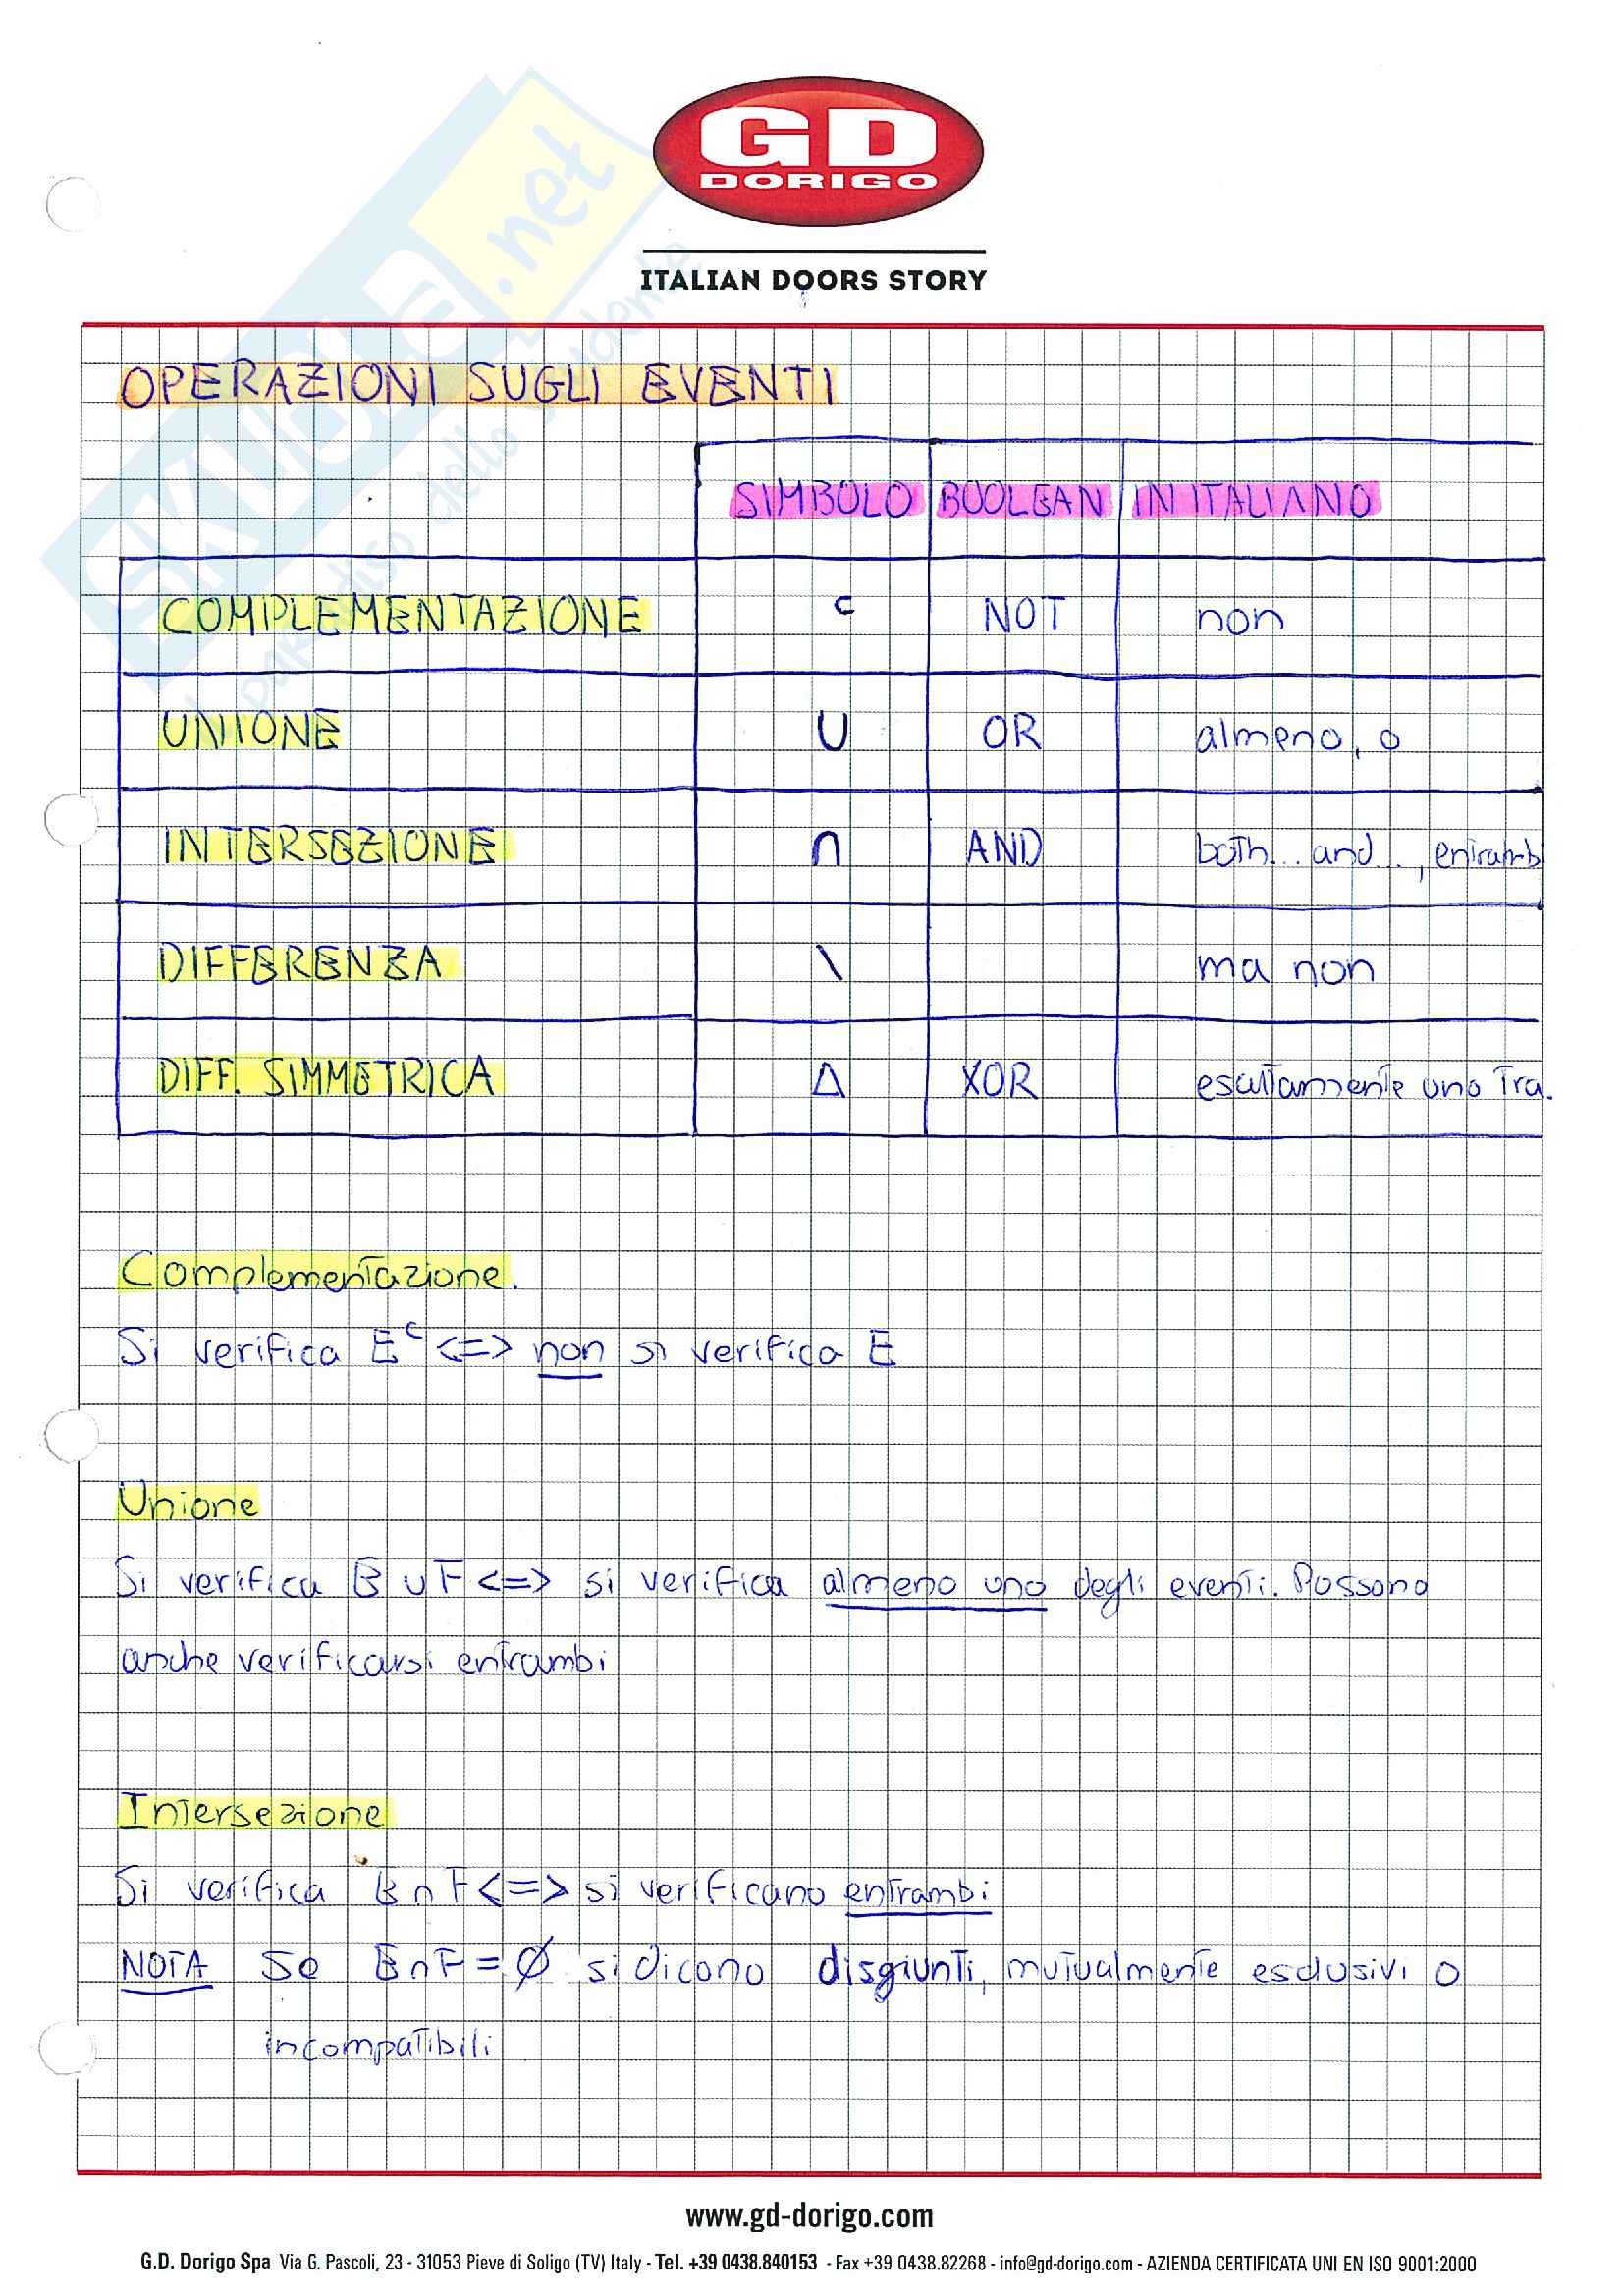 GD
DORIGO
ITALIAN DOORS STORY
SKUOLA.net
il paradiso dello studente
OPERAZIONI SUGLI EVENTI
SIMBOLO BOOLEAN IN ITALIANO
COMPLEMENTAZIONE c NOT non
UNIONE ∪ OR almeno, o
INTERSEZIONE ∩ AND both... and..., entrambi
DIFFERENZA \ ma non
DIFF. SIMMETRICA Δ XOR esattamente uno tra.
Complementazione.
Si verifica Eᶜ <=> non si verifica E
Unione
Si verifica E ∪ F <=> si verifica almeno uno degli eventi. Possono
anche verificarsi entrambi
Intersezione
Si verifica E ∩ F <=> si verificano entrambi
NOTA Se E ∩ F = Ø si dicono disgiunti, mutualmente esclusivi o
incompatibili
www.gd-dorigo.com
G.D. Dorigo Spa Via G. Pascoli, 23 - 31053 Pieve di Soligo (TV) Italy - Tel. +39 0438.840153 - Fax +39 0438.82268 - info@gd-dorigo.com - AZIENDA CERTIFICATA UNI EN ISO 9001:2000